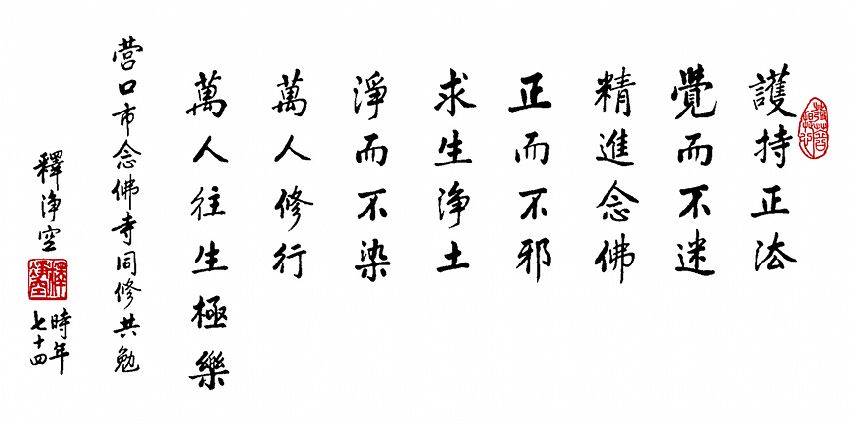 護持正法
覺而不迷
精進念佛
正而不邪
求生淨土
淨而不染
萬人修行
萬人往生極樂
营口市念佛寺同修共勉
釋淨空
時年
七十四